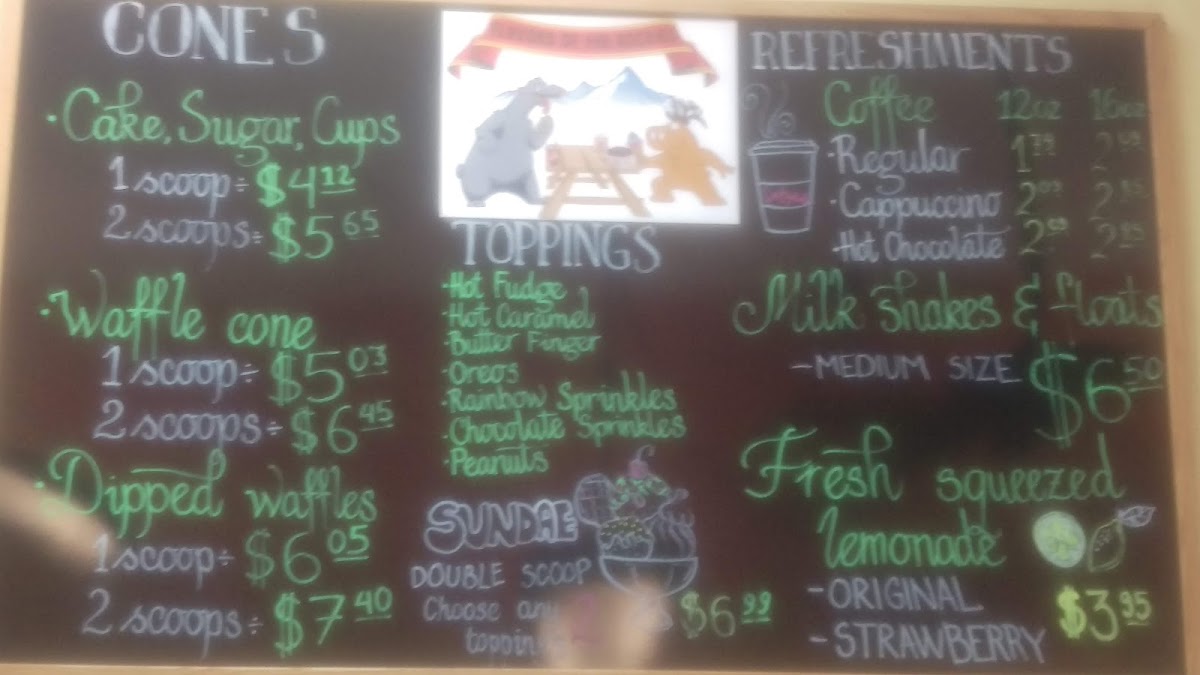 CONES
·Cake, Sugar, Cups
1 scoop÷ $4 12
2 scoops÷ $5 65
·Waffle cone
1 scoop÷ $5 03
2 scoops÷ $6 45
·Dipped waffles
1 scoop÷ $6 05
2 scoops÷ $7 40
TOPPINGS
·Hot Fudge
·Hot Caramel
·Butter Finger
·Oreos
·Rainbow Sprinkles
·Chocolate Sprinkles
·Peanuts
SUNDAE
DOUBLE SCOOP
Choose any
$6 99
REFRESHMENTS
Coffee 12oz 16oz
·Regular
·Cappuccino
·Hot Chocolate
Milk shakes & floats
- MEDIUM SIZE $6 50
Fresh squeezed
lemonade
- ORIGINAL
- STRAWBERRY
$3 95